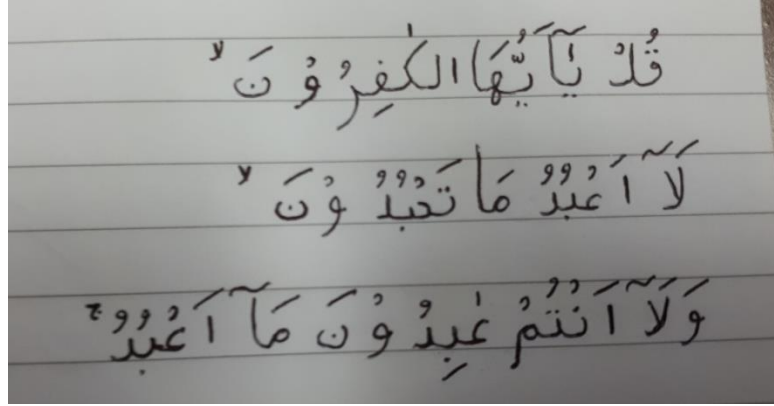 قُلْ يٰٓاَيُّهَا الْكٰفِرُوْنَ ۙ
لَآ اَعْبُدُ مَا تَعْبُدُوْنَ ۙ
وَلَآ اَنْتُمْ عٰبِدُوْنَ مَآ اَعْبُدُ ۚ